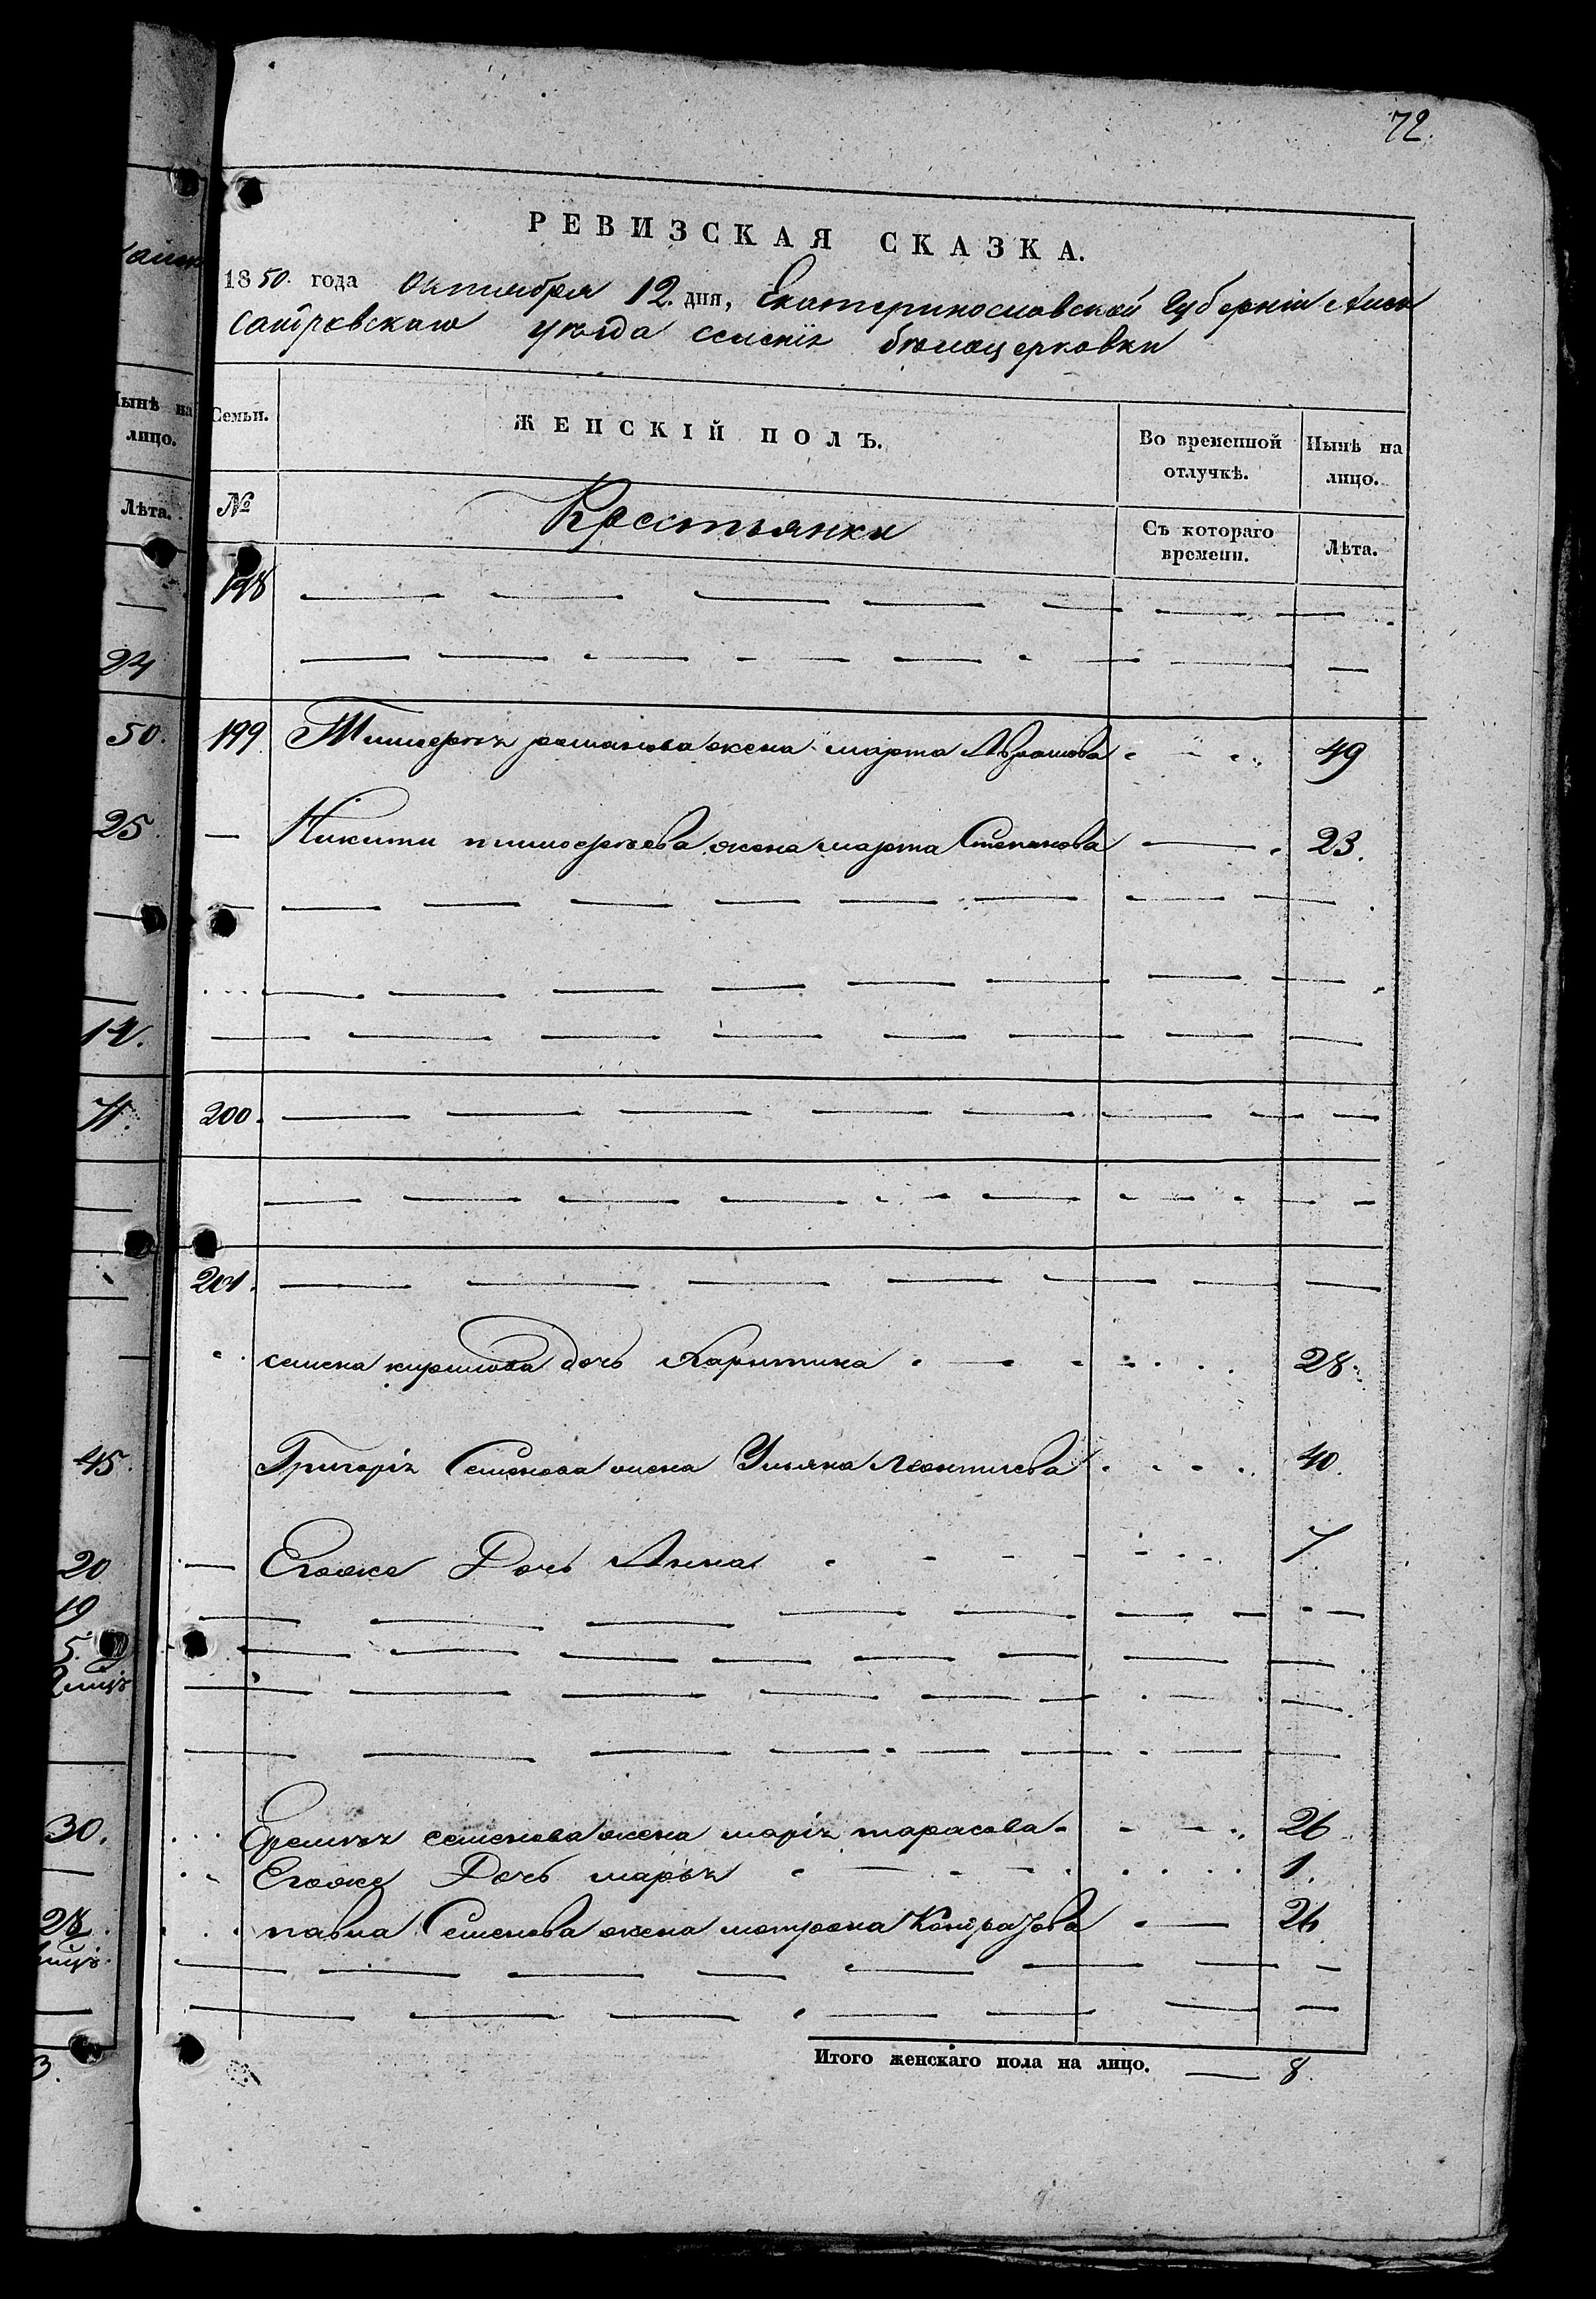 72.
РЕВИЗСКАЯ СКАЗКА.
1850. года Октября 12. дня, Екатеринославской Губерніи Алек
сандровскаго уезда селенія белоцерковки
Семьи.
ЖЕНСКІЙ ПОЛЪ.
Во временной отлучкѣ.
Нынѣ на лицо.
№
Крестьянки
Съ котораго времени.
Лѣта.
198
199 Тимофея романова жена марта Абрамова 49
Никити тимофеева жена марта Степанова 23.
200.
201.
семена кирилова дочь Харитина 28.
Григорія Семенова жена Ульяна Леонтиева 40.
Егоже Дочь Анна 7
Еремея семенова жена марія тарасова 26
Егоже Дочь марья 1.
павла Семенова жена мотрона 26
Итого женскаго пола на лицо. 8.
Нынѣ на лицо.
Лѣта.
24
50.
25
14.
71.
45.
20
19
5.
30.
28
3.